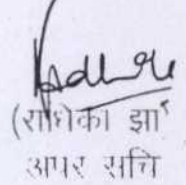 (राधिका झा
अपर सचि